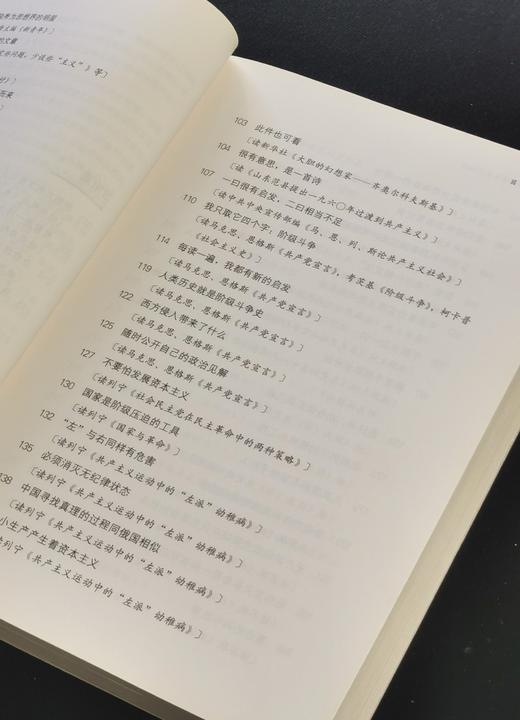 想界的明星
《新青年》〕
的文章
究些问题，少谈些“主义”》等〕
103 此件也可看
〔读新华社《大胆的幻想家——齐奥尔科夫斯基》〕
104 很有意思，是一首诗
〔读《山东范县提出一九六〇年过渡到共产主义》〕
107 一曰很有启发，二曰相当不足
〔读中共中央宣传部编《马、恩、列、斯论共产主义社会》〕
110 我只取它四个字：阶级斗争
〔读马克思、恩格斯《共产党宣言》，考茨基《阶级斗争》，柯卡普
《社会主义史》〕
114 每读一遍，我都有新的启发
〔读马克思、恩格斯《共产党宣言》〕
119 人类历史就是阶级斗争史
〔读马克思、恩格斯《共产党宣言》〕
122 西方侵入带来了什么
〔读马克思、恩格斯《共产党宣言》〕
125 随时公开自己的政治见解
〔读马克思、恩格斯《共产党宣言》〕
127 不要怕发展资本主义
〔读列宁《社会民主党在民主革命中的两种策略》〕
130 国家是阶级压迫的工具
〔读列宁《国家与革命》〕
132 “左”与右同样有危害
〔读列宁《共产主义运动中的“左派”幼稚病》〕
135 必须消灭无纪律状态
〔读列宁《共产主义运动中的“左派”幼稚病》〕
138 中国寻找真理的过程同俄国相似
〔读列宁《共产主义运动中的“左派”幼稚病》〕
小生产产生着资本主义
读列宁《共产主义运动中的“左派”幼稚病》〕